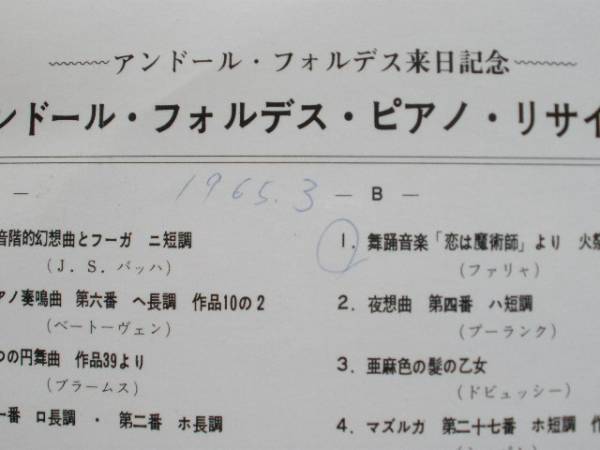 アンドール・フォルデス来日記念
ンドール・フォルデス・ピアノ・リサイ
1965.3
音階的幻想曲とフーガ ニ短調
(J.S.バッハ)
アノ奏鳴曲 第六番 ヘ長調 作品10の2
(ベートーヴェン)
つの円舞曲 作品39より
(ブラームス)
一番 ロ長調 ・ 第二番 ホ長調
— B —
1. 舞踊音楽「恋は魔術師」より 火祭
(ファリャ)
2. 夜想曲 第四番 ハ短調
(プーランク)
3. 亜麻色の髪の乙女
(ドビュッシー)
4. マズルカ 第二十七番 ホ短調 作